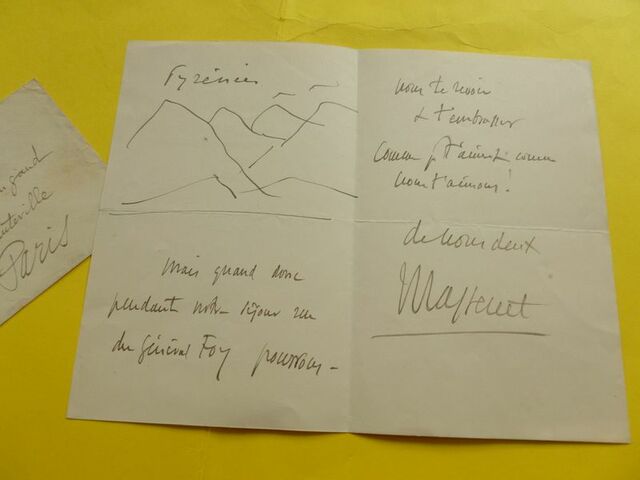 grand
Paris
Pyrénées
Mais quand donc
pendant notre séjour rue
du Général Foy pourrons-
nous te revoir
& t'embrasser
comme je t'aime & comme
nous t'aimons!
de nous deux
Massenet